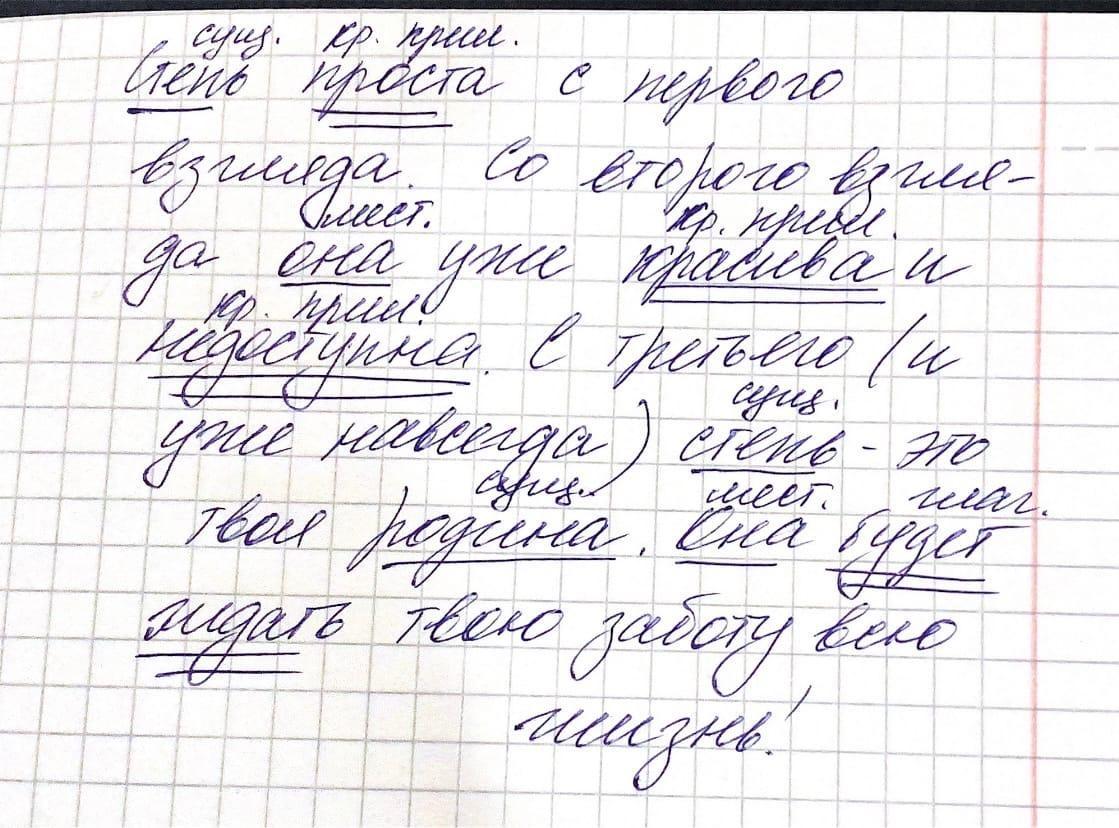 сущ. кр. прил.
Степь проста с первого
взгляда. Со второго взгля-
мест. кр. прил.
да она уже красива и
кр. прил.
недоступна. С третьего (и
сущ.
уже навсегда) степь - это
сущ. мест. глаг.
твоя родина. Она будет
ждать твою заботу всю
жизнь!